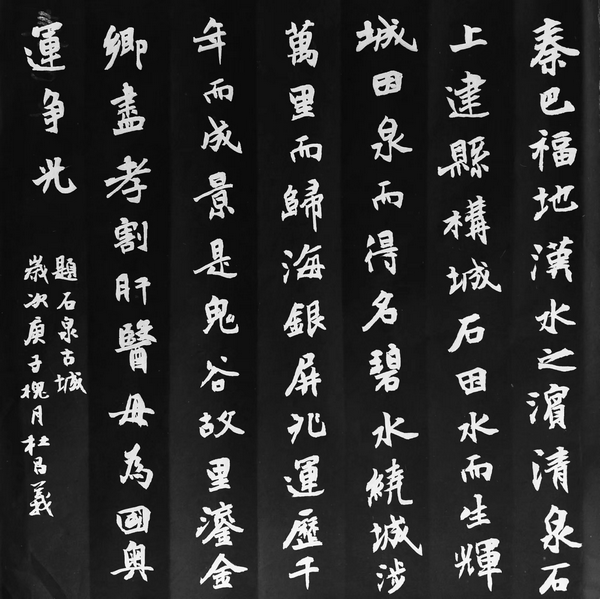 秦巴福地漢水之濱清泉石
上建縣構城石因水而生輝
城因泉而得名碧水繞城涉
萬里而歸海銀屏兆運歷千
年而成景是鬼谷故里鎏金
鄉盡孝割肝醫母為國奥
運争光
題石泉古城
歲次庚子槐月杜昌義